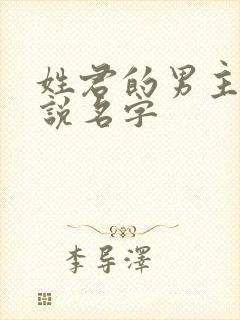 姓君的男主
説名字
李导澤